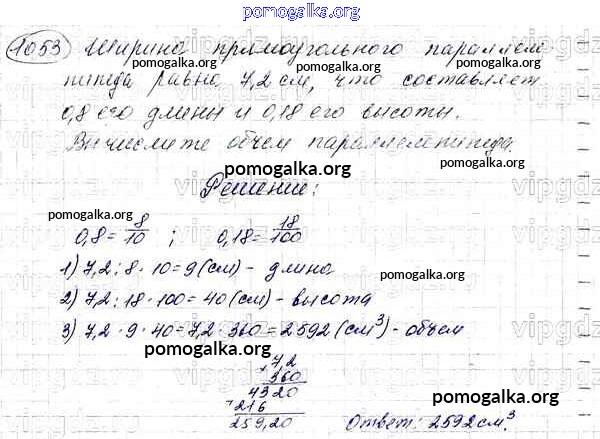 pomogalka.org
1053 Ширина прямоугольного параллеле-
пипеда равна 7,2 см, что составляет
0,8 его длины и 0,18 его высоты.
Вычислите объем параллелепипеда.
pomogalka.org
Решение:
pomogalka.org
0,8 = 8/10 ; 0,18 = 18/100
pomogalka.org
1) 7,2 : 8 · 10 = 9 (см) - длина
pomogalka.org
2) 7,2 : 18 · 100 = 40 (см) - высота
3) 7,2 · 9 · 40 = 7,2 · 360 = 2592 (см³) - объем
pomogalka.org
× 7,2
360
4320
pomogalka.org
+ 216
259,20
Ответ: 2592 см³
pomogalka.org